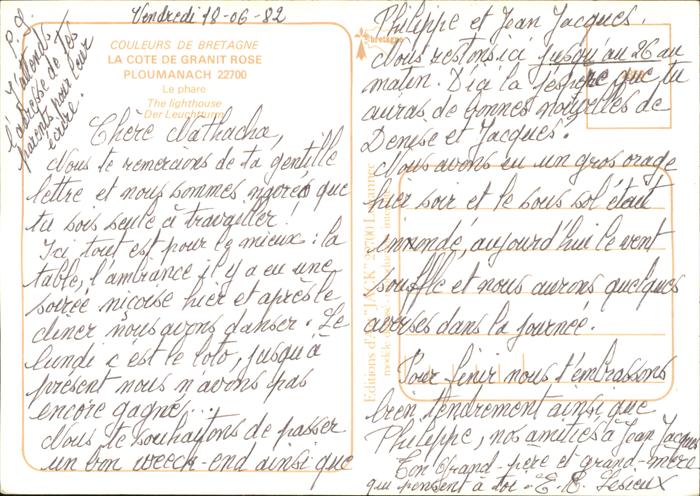 Vendredi 18-06-82
P.S.
J'attends
l'adresse de tes
parents pour leur
écrire.
COULEURS DE BRETAGNE
LA COTE DE GRANIT ROSE
PLOUMANACH 22700
Le phare
The lighthouse
Der Leuchtturm
Chère Nathacha,
Nous te remercions de ta gentille
lettre et nous sommes navrés que
tu sois seule à travailler!
Ici tout est pour le mieux : la
table, l'ambiance il y a eu une
soirée niçoise hier et après le
diner nous avons danser. Le
lundi c'est le loto, jusqu'à
présent nous n'avons pas
encore gagné...
Nous te souhaitons de passer
un bon weeck-end ainsi que
bretagne
Philippe et Jean Jacques.
Nous restons ici jusqu'au 26 au
matin. D'ici là j'espère que tu
auras de bonnes nouvelles de
Denise et Jacques?
Nous avons eu un gros orage
hier soir et le sous sol était
innondé, aujourd'hui le vent
souffle et nous aurons quelques
averses dans la journée.
Pour finir nous t'embrassons
bien tendrement ainsi que
Philippe, nos amitiés à Jean Jacques
Ton grand-père et grand-mère
qui pensent à toi. E. R. Lesieux
Editions d'Art "JACK" 22700 Louannec